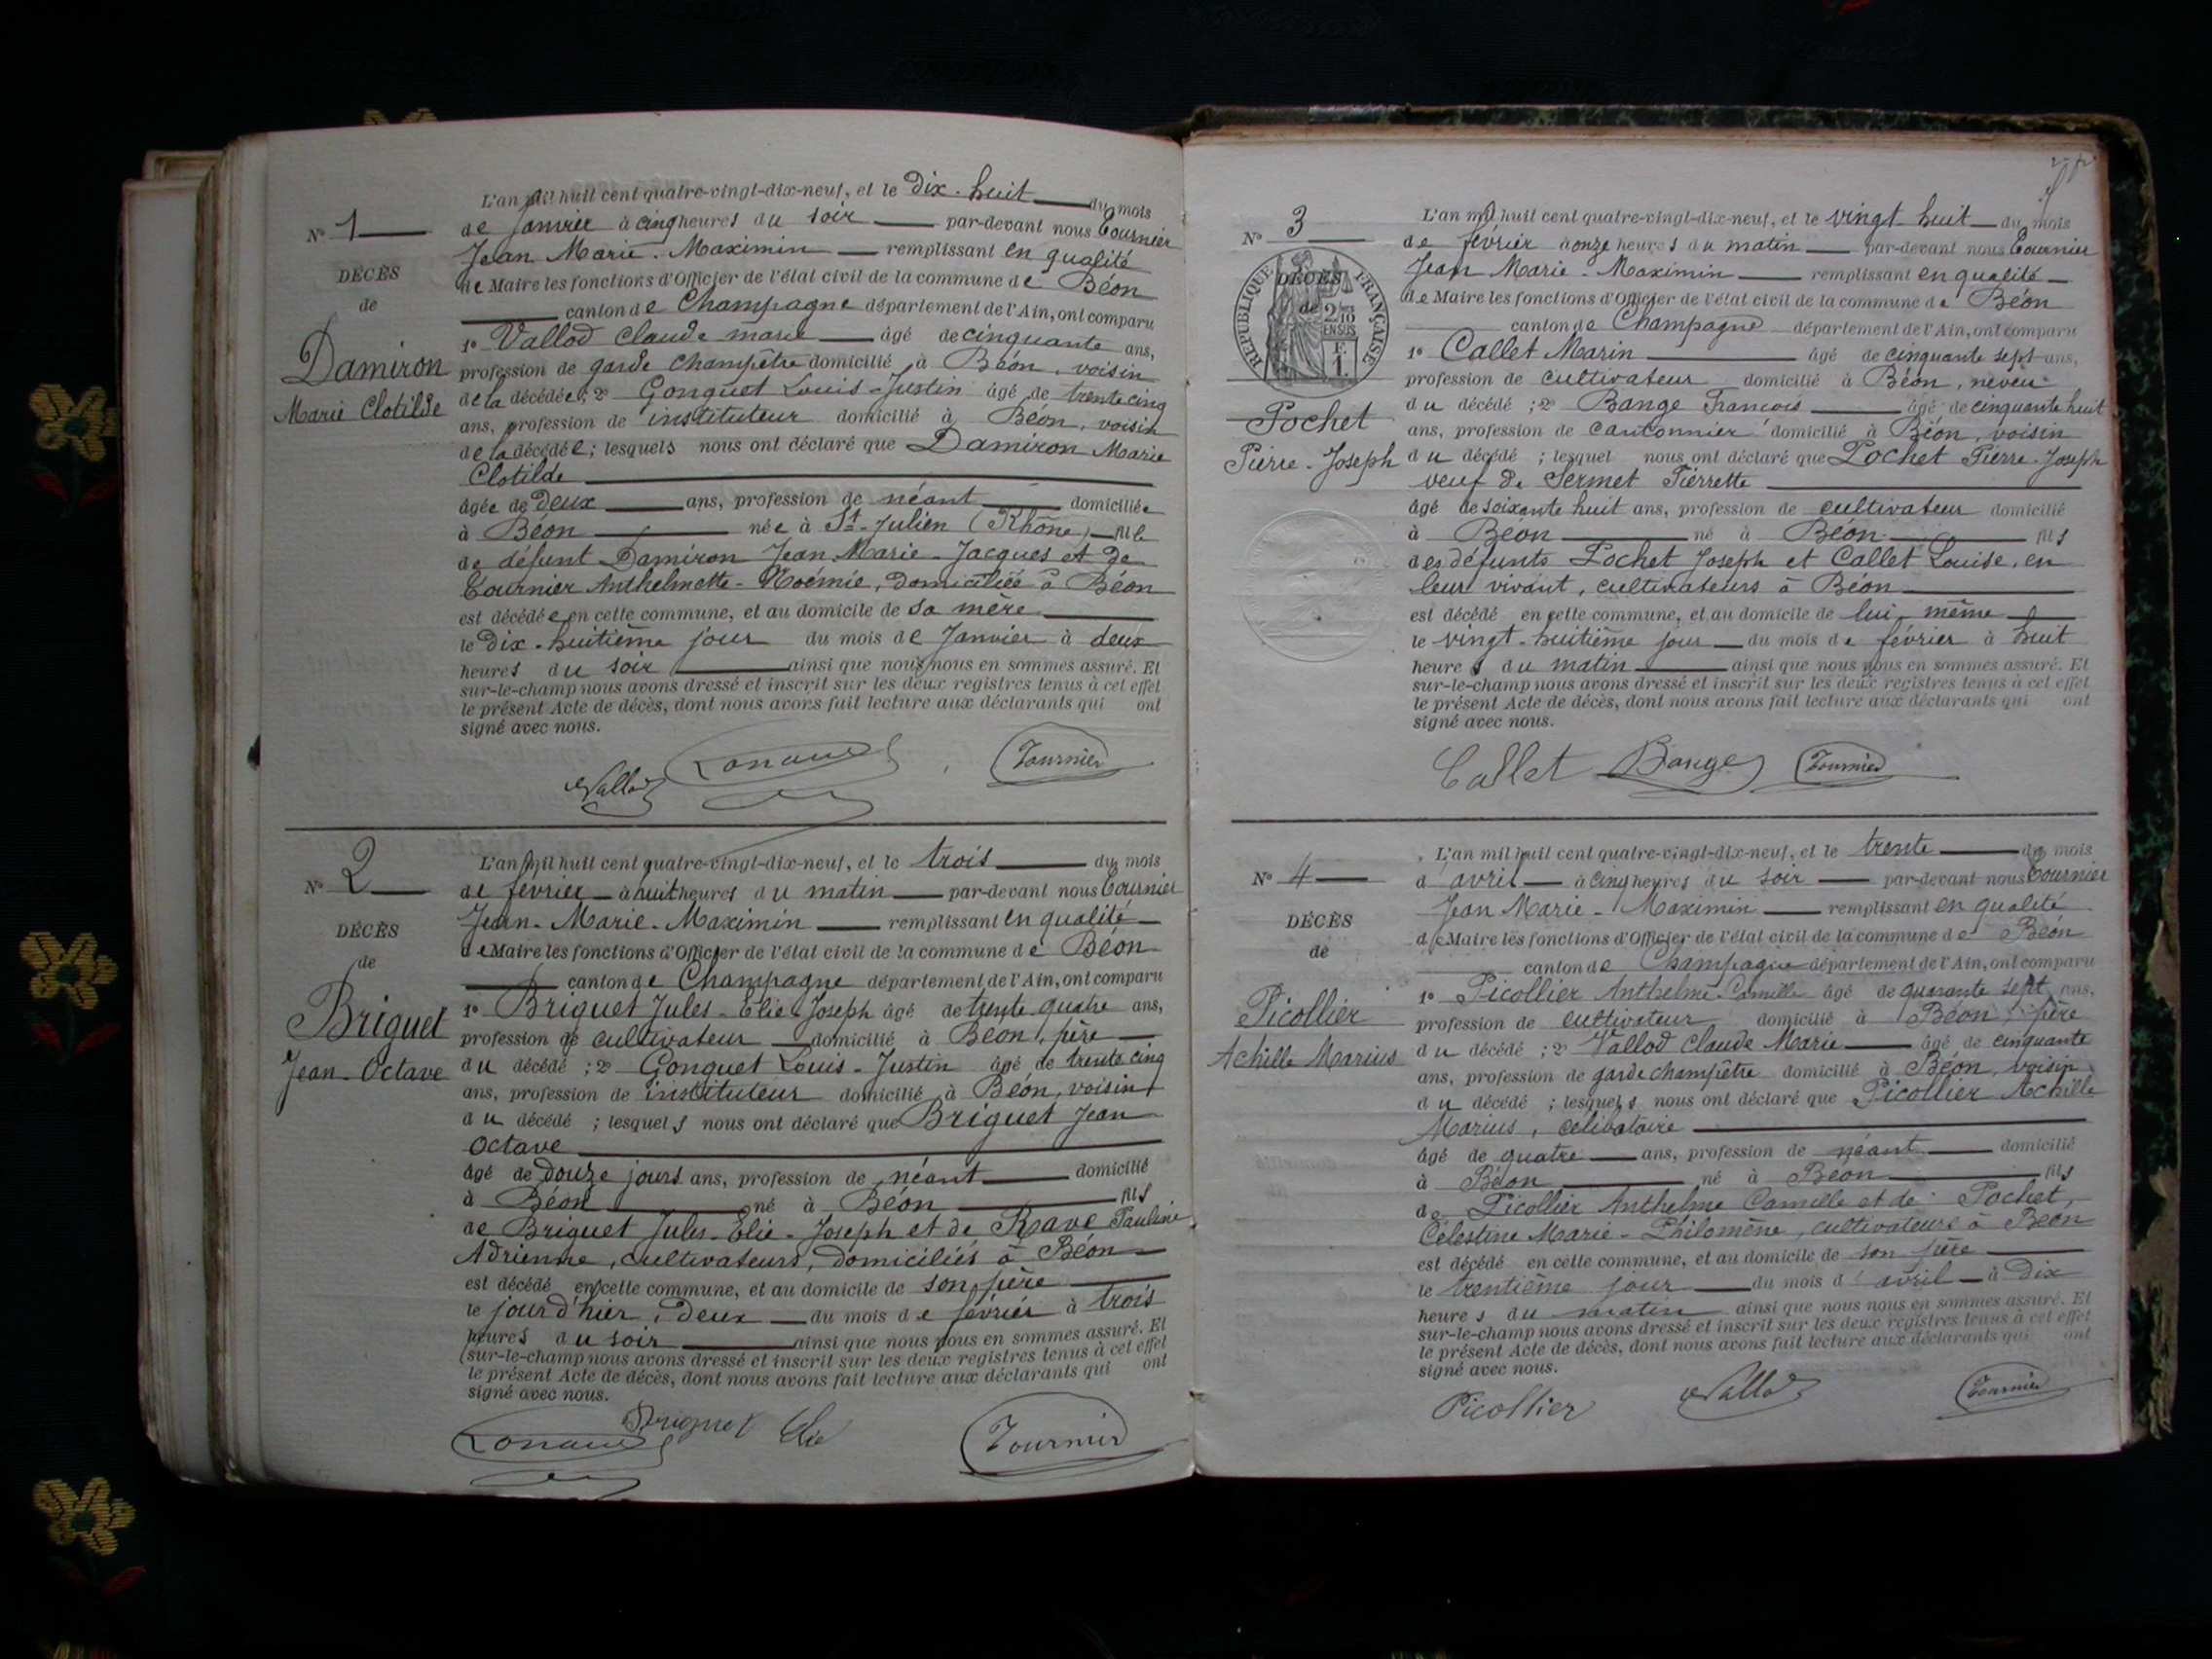 L'an mil huit cent quatre-vingt-dix-neuf, et le dix-huit du mois
N° 1 de Janvier à cinq heures du soir par-devant nous Tournier
Jean Marie-Maximin remplissant en qualité
DÉCÈS de Maire les fonctions d'Officier de l'état civil de la commune de Béon
de canton de Champagne département de l'Ain, ont comparu
1° Vallod Claude Marie âgé de cinquante ans,
Damiron profession de garde champêtre domicilié à Béon, voisin
Marie Clotilde de la décédée; 2° Gonguet Louis-Justin âgé de trente cinq
ans, profession de instituteur domicilié à Béon, voisin
de la décédée; lesquels nous ont déclaré que Damiron Marie
Clotilde
âgée de deux ans, profession de néant domiciliée
à Béon née à St-Julien (Rhône) fille
de défunt Damiron Jean-Marie-Jacques et de
Tournier Anthelmette-Noémie, domiciliée à Béon
est décédée en cette commune, et au domicile de sa mère
le dix-huitième jour du mois de Janvier à deux
heures du soir ainsi que nous nous en sommes assuré. Et
sur-le-champ nous avons dressé et inscrit sur les deux registres tenus à cet effet
le présent Acte de décès, dont nous avons fait lecture aux déclarants qui ont
signé avec nous.
Vallod Tournier
L'an mil huit cent quatre-vingt-dix-neuf, et le trois du mois
N° 2 de février à huit heures du matin par-devant nous Tournier
Jean-Marie-Maximin remplissant en qualité
DÉCÈS de Maire les fonctions d'Officier de l'état civil de la commune de Béon
de canton de Champagne département de l'Ain, ont comparu
1° Briguet Jules-Elie-Joseph âgé de trente quatre ans,
Briguet profession de cultivateur domicilié à Béon, père
Jean-Octave du décédé; 2° Gonguet Louis-Justin âgé de trente cinq
ans, profession de instituteur domicilié à Béon, voisin
du décédé; lesquels nous ont déclaré que Briguet Jean
Octave
âgé de douze jours ans, profession de néant domicilié
à Béon né à Béon fils
de Briguet Jules-Elie-Joseph et de Rave Pauline
Adrienne, cultivateurs, domiciliés à Béon
est décédé en cette commune, et au domicile de son père
le jour d'hier, deux du mois de février à trois
heures du soir ainsi que nous nous en sommes assuré. Et
sur-le-champ nous avons dressé et inscrit sur les deux registres tenus à cet effet
le présent Acte de décès, dont nous avons fait lecture aux déclarants qui ont
signé avec nous.
Briguet Elie Tournier
L'an mil huit cent quatre-vingt-dix-neuf, et le vingt-huit du mois
N° 3 de février à onze heures du matin par-devant nous Tournier
Jean Marie-Maximin remplissant en qualité
DÉCÈS de Maire les fonctions d'Officier de l'état civil de la commune de Béon
de canton de Champagne département de l'Ain, ont comparu
RÉPUBLIQUE FRANÇAISE
2/10 EN SUS
F. 1.
1° Callet Marin âgé de cinquante sept ans,
profession de cultivateur domicilié à Béon, neveu
Pochet du décédé; 2° Bange François âgé de cinquante huit
ans, profession de cantonnier domicilié à Béon, voisin
Pierre-Joseph du décédé; lesquel nous ont déclaré que Pochet Pierre-Joseph
veuf de Sermet Pierrette
âgé de soixante huit ans, profession de cultivateur domicilié
à Béon né à Béon fils
des défunts Pochet Joseph et Callet Louise, en
leur vivant, cultivateurs à Béon
est décédé en cette commune, et au domicile de lui-même
le vingt-huitième jour du mois de février à huit
heures du matin ainsi que nous nous en sommes assuré. Et
sur-le-champ nous avons dressé et inscrit sur les deux registres tenus à cet effet
le présent Acte de décès, dont nous avons fait lecture aux déclarants qui ont
signé avec nous.
Callet Bange Tournier
L'an mil huit cent quatre-vingt-dix-neuf, et le trente du mois
N° 4 d'avril à cinq heures du soir par-devant nous Tournier
Jean Marie-Maximin remplissant en qualité
DÉCÈS de Maire les fonctions d'Officier de l'état civil de la commune de Béon
de canton de Champagne département de l'Ain, ont comparu
1° Picollier Anthelme-Camille âgé de quarante sept ans,
Picollier profession de cultivateur domicilié à Béon, père
Achille Marius du décédé; 2° Vallod Claude Marie âgé de cinquante
ans, profession de garde champêtre domicilié à Béon, voisin
du décédé; lesquels nous ont déclaré que Picollier Achille
Marius, célibataire
âgé de quatre ans, profession de néant domicilié
à Béon né à Béon fils
de Picollier Anthelme Camille et de Pochet,
Célestine Marie-Philomène, cultivateurs à Béon
est décédé en cette commune, et au domicile de son père
le trentième jour du mois d'avril à dix
heures du matin ainsi que nous nous en sommes assuré. Et
sur-le-champ nous avons dressé et inscrit sur les deux registres tenus à cet effet
le présent Acte de décès, dont nous avons fait lecture aux déclarants qui ont
signé avec nous.
Picollier Vallod Tournier